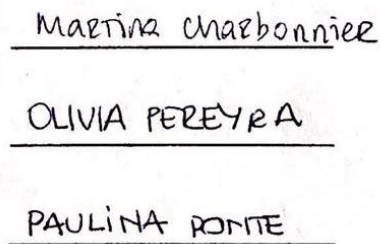 Martina Charbonnier
OLIVIA PEREYRA
PAULINA PONTE